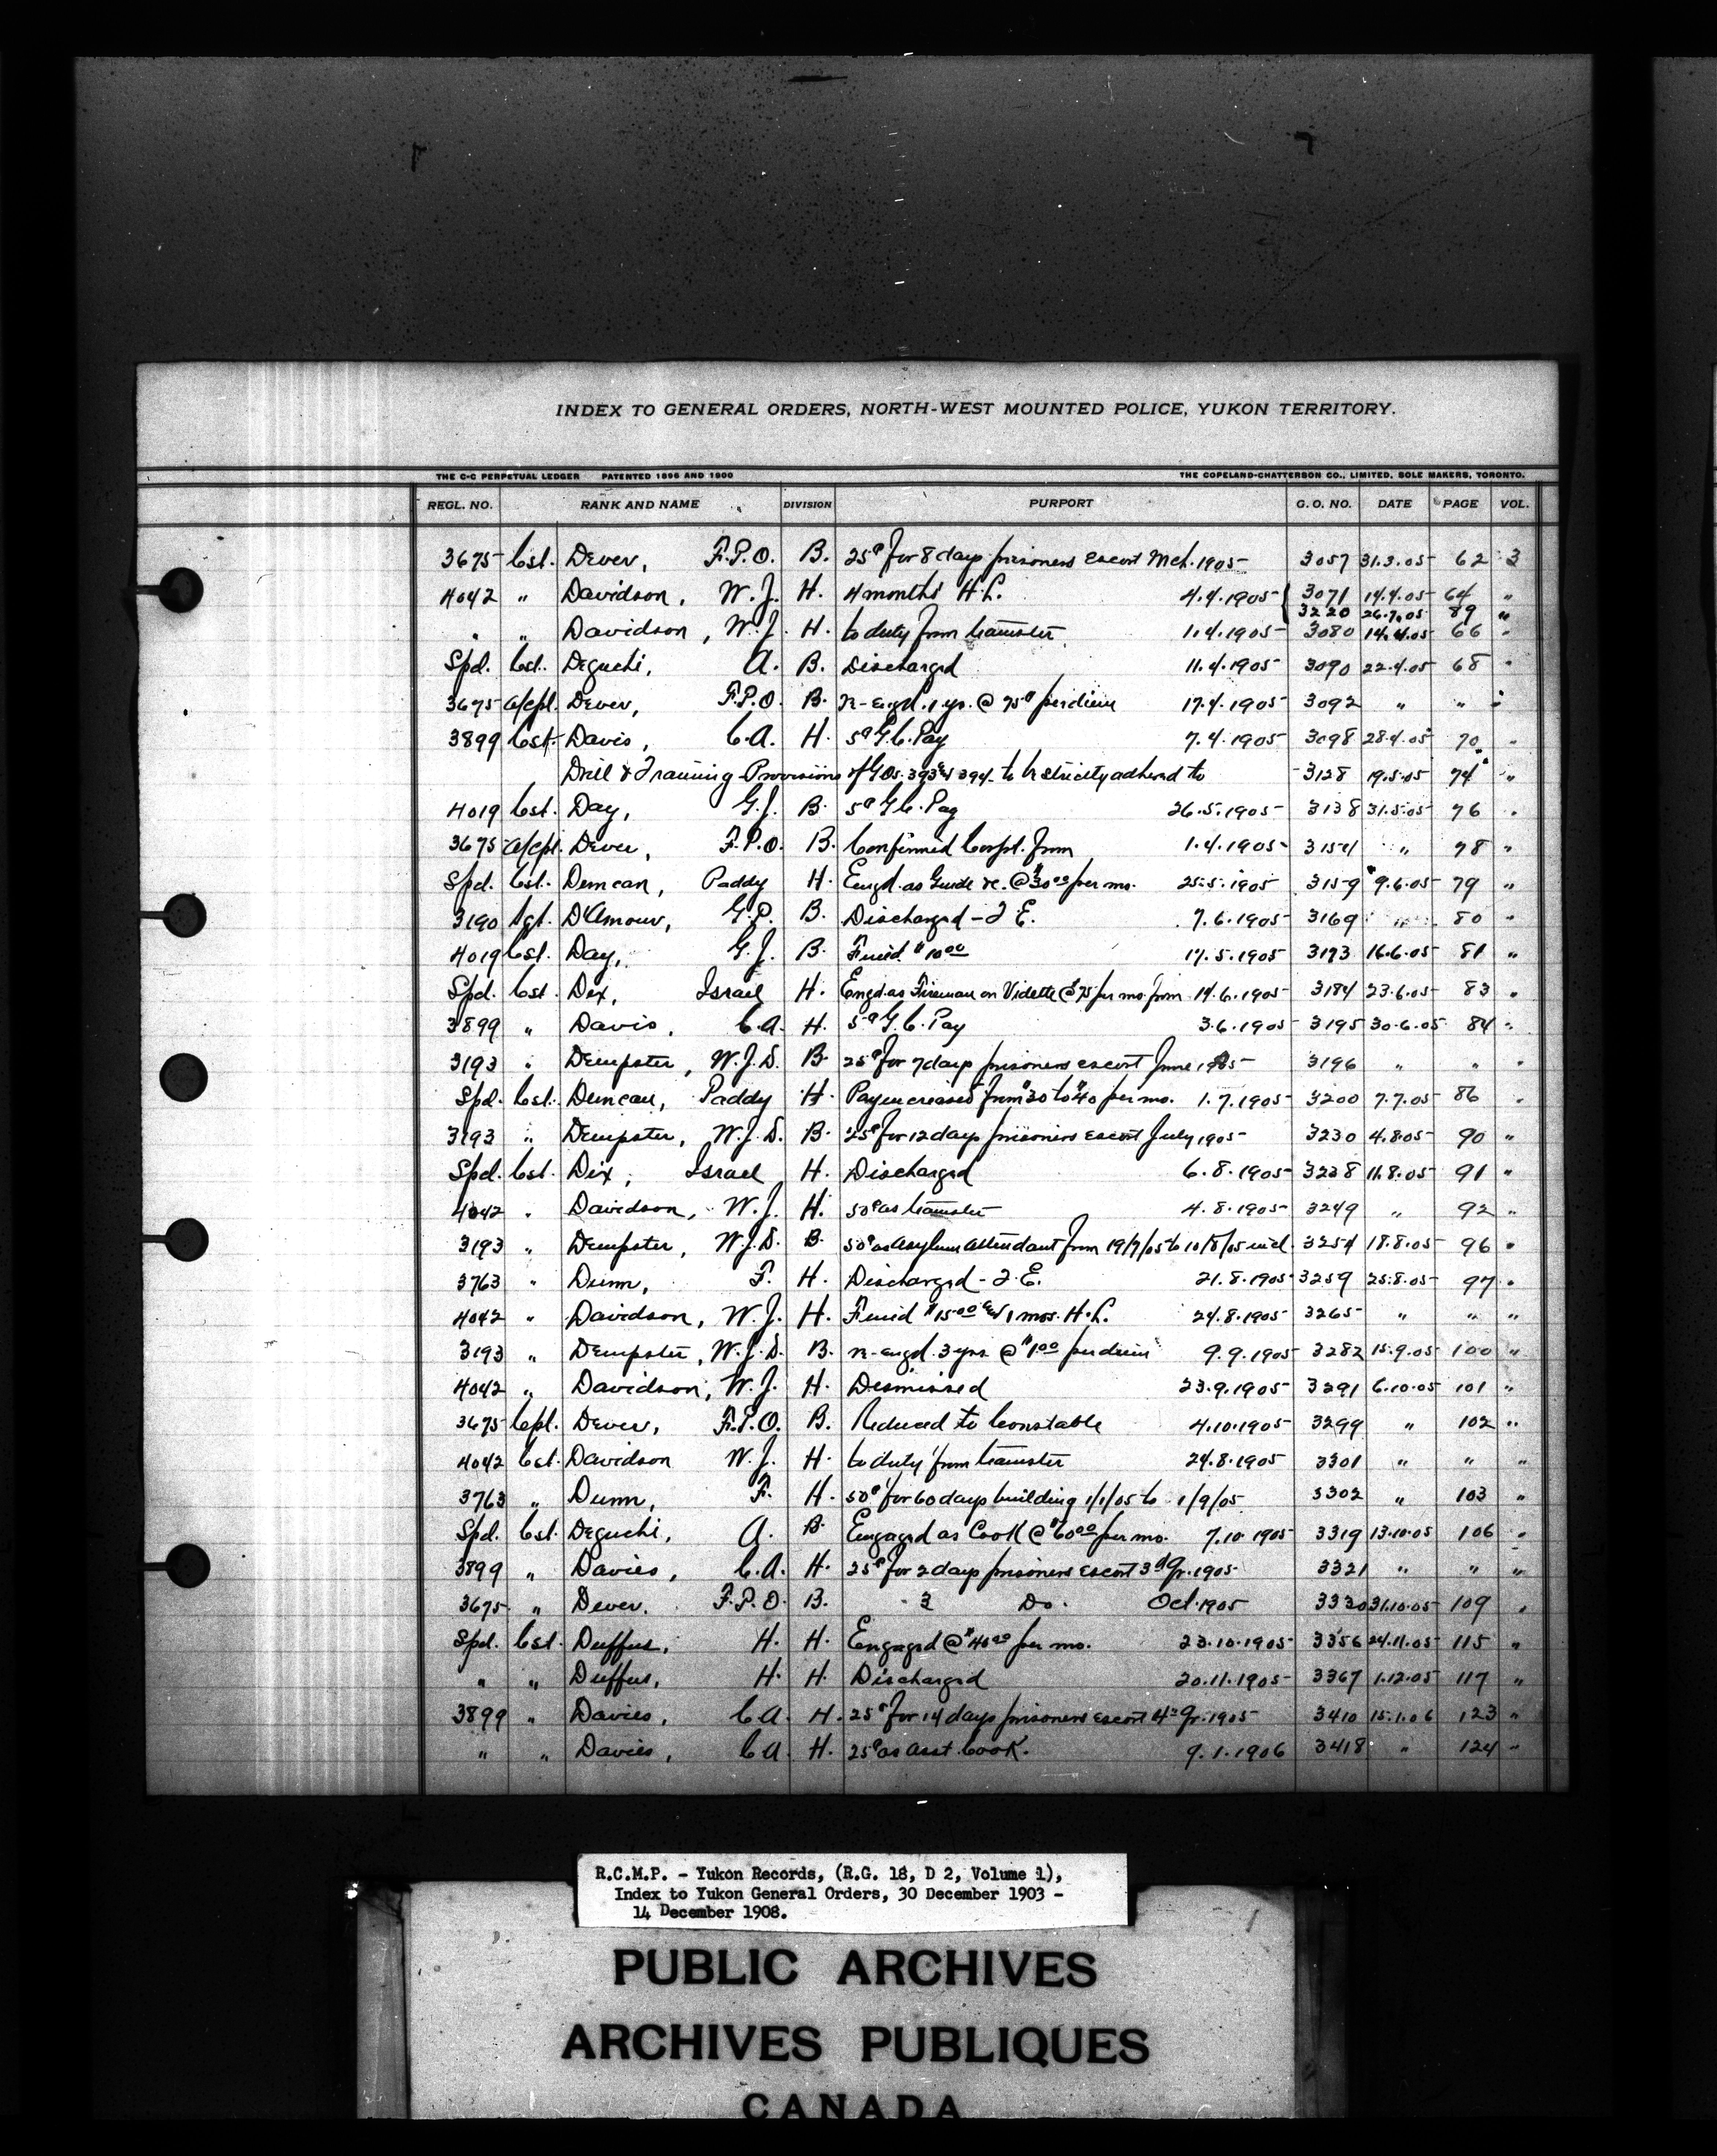 INDEX TO GENERAL ORDERS, NORTH-WEST MOUNTED POLICE, YUKON TERRITORY.
THE C-C PERPETUAL LEDGER PATENTED 1896 AND 1900 THE COPELAND-CHATTERSON CO., LIMITED, SOLE MAKERS, TORONTO.
REGL. NO. RANK AND NAME DIVISION PURPORT G. O. NO. DATE PAGE VOL.
3675 Cst. Dever, F.P.O. B. 25¢ for 8 days prisoners escort Mch. 1905 3057 31.3.05 62 3
4042 " Davidson, W.J. H. 4 months H.L. 4.4.1905 { 3071 14.4.05 64 "
3220 26.7.05 89 "
" " Davidson, W.J. H. to duty from teamster 1.4.1905 3080 14.4.05 66 "
Spd. Cst. Deguchi, A. B. Discharged 11.4.1905 3090 22.4.05 68 "
3675 a/cpl. Dever, F.P.O. B. re-engd. 1 yr. @ 75¢ per diem 17.4.1905 3092 " " "
3899 Cst. Davis, C.A. H. 5¢ G.C. Pay 7.4.1905 3098 28.4.05 70 "
Drill & Training-Provisions of G.Os. 393 & 394 to be strictly adhered to 3128 19.5.05 74 "
4019 Cst. Day, G.J. B. 5¢ G.C. Pay 26.5.1905 3138 31.5.05 76 "
3675 a/cpl. Dever, F.P.O. B. Confirmed Corpl. from 1.4.1905 3154 " 78 "
Spd. Cst. Duncan, Paddy H. Engd. as Guide &c. @ $30.00 per mo. 25.5.1905 3159 9.6.05 79 "
3190 Sgt. D'Amour, G.P. B. Discharged - T.E. 7.6.1905 3169 " 80 "
4019 Cst. Day, G.J. B. Fined $10.00 17.5.1905 3173 16.6.05 81 "
Spd. Cst. Dix, Israel H. Engd. as Fireman on Vidette @ $75 per mo. from 14.6.1905 3184 23.6.05 83 "
3899 " Davis, C.A. H. 5¢ G.C. Pay 3.6.1905 3195 30.6.05 84 "
3193 " Dempster, W.J.D. B. 25¢ for 7 days prisoners escort June 1905 3196 " " "
Spd. Cst. Duncan, Paddy H. Pay increased from $30 to $40 per mo. 1.7.1905 3200 7.7.05 86 "
3193 " Dempster, W.J.D. B. 25¢ for 12 days prisoners escort July 1905 3230 4.8.05 90 "
Spd. Cst. Dix, Israel H. Discharged 6.8.1905 3238 11.8.05 91 "
4042 " Davidson, W.J. H. 50¢ as teamster 4.8.1905 3249 " 92 "
3193 " Dempster, W.J.D. B. 50¢ as Asylum Attendant from 19/7/05 to 10/8/05 incl. 3254 18.8.05 96 "
3763 " Dunn, F. H. Discharged - T.E. 21.8.1905 3259 25.8.05 97 "
4042 " Davidson, W.J. H. Fined $15.00 & 1 mos. H.L. 24.8.1905 3265 " " "
3193 " Dempster, W.J.D. B. re-engd. 3 yrs. @ $1.00 per diem 9.9.1905 3282 15.9.05 100 "
4042 " Davidson, W.J. H. Dismissed 23.9.1905 3291 6.10.05 101 "
3675 Cpl. Dever, F.P.O. B. Reduced to Constable 4.10.1905 3299 " 102 "
4042 Cst. Davidson W.J. H. to duty from teamster 24.8.1905 3301 " " "
3763 " Dunn, F. H. 50¢ for 60 days building 1/1/05 to 1/9/05 3302 " 103 "
Spd. Cst. Deguchi, A. B. Engaged as Cook @ $60.00 per mo. 7.10.1905 3319 13.10.05 106 "
3899 " Davies, C.A. H. 25¢ for 2 days prisoners escort 3rd Qr. 1905 3321 " " "
3675 " Dever. F.P.O. B. " 3 Do. Oct. 1905 3330 31.10.05 109 "
Spd. Cst. Duffus, H. H. Engaged @ $40.00 per mo. 23.10.1905 3356 24.11.05 115 "
" " Duffus, H. H. Discharged 20.11.1905 3367 1.12.05 117 "
3899 " Davies, C.A. H. 25¢ for 14 days prisoners escort 4th Qr. 1905 3410 15.1.06 123 "
" " Davies, C.A. H. 25¢ as Asst. Cook. 9.1.1906 3418 " 124 "
R.C.M.P. - Yukon Records, (R.G. 18, D 2, Volume 1),
Index to Yukon General Orders, 30 December 1903 -
14 December 1908.
PUBLIC ARCHIVES
ARCHIVES PUBLIQUES
CANADA